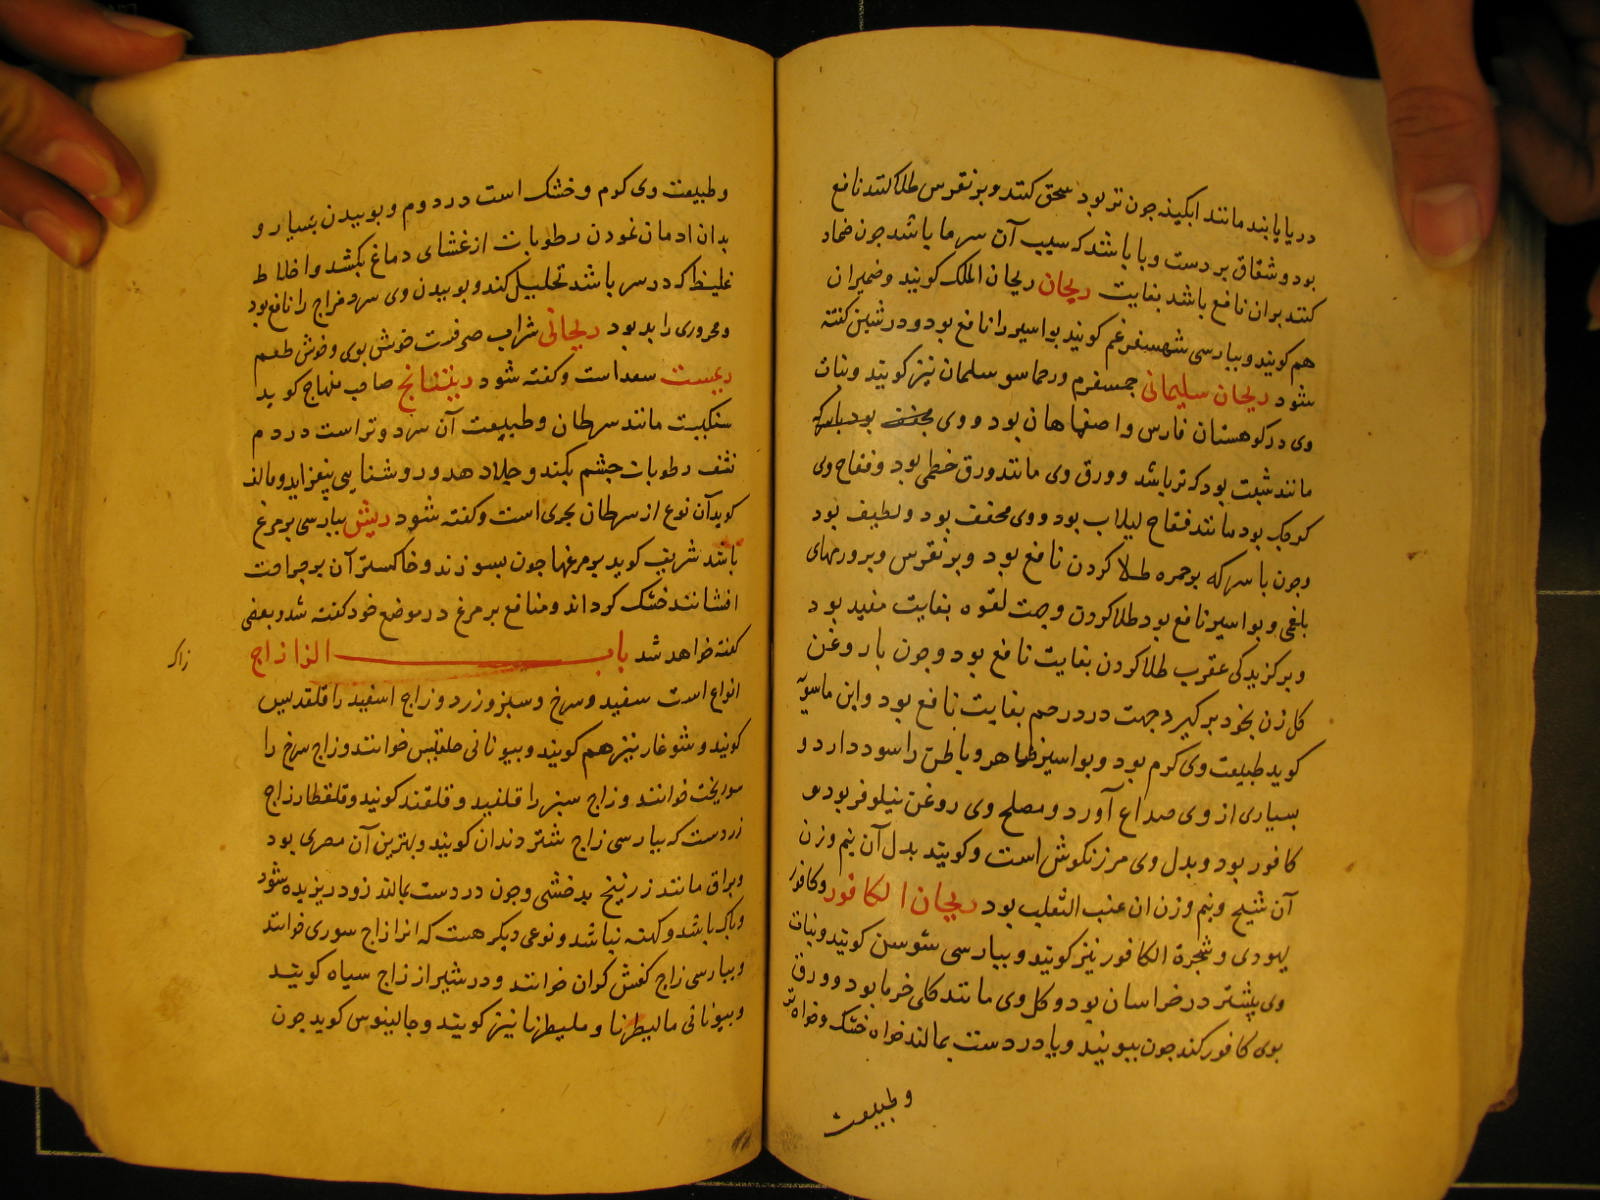 دریا یابند مانند ابکینه جون تر بود سحق کنند و بر نقرس طلا کنند نافع
بود و شقاق بر دست و پا باشد که سبب آن سرما باشد جون ضماد
کنند بران نافع باشد بغایت ریحان ریحان الملک کویند و ضمیران
هم کویند و بپارسی شهسفرغم کویند بواسیر را نافع بود و در شین کفته
شود ریحان سلیمانی جمسفرم و رحماسو سلمان نیز کویند و نبات
وی در کوهستان فارس و اصفاهان بود و وی مجفف بود باسرکه
مانند شبت بود که تر باشد و ورق وی مانند ورق خطمی بود و فقاح وی
کوجک بود مانند فقاح لبلاب بود و وی مجفف بود و لطیف بود
وجون با سرکه بر حمره طلا کردن نافع بود و بر نقرس و بر ورمهای
بلغمی و بواسیر نافع بود طلا کردن و جهت لقوه بغایت مفید بود
و بر کزیدکی عقرب طلا کردن نافع بود و جون با روغن
کل زن بخود برکیرد جهت درد رحم بغایت نافع بود و ابن ماسویه
کوید طبیعت وی کرم بود و بواسیر ظاهر و باطن را سود دارد و
بسیاری از وی صداع آورد و مصلح وی روغن نیلوفر بود و
کافور بود و بدل وی مرزنکوش است و کویند بدل آن نیم وزن
آن شیح و نیم وزن ان عنب الثعلب بود ریحان الکافور و کافور
یهودی و شجرة الکافور نیز کویند و بپارسی سوسن کویند و نبات
وی پیشتر در خراسان بود و کل وی مانند کلی خرما بود و ورق
بوی کافور کند جون ببویند و یا در دست بمالند خواه خشک و خواه تر
و طبیعت
و طبیعت وی کرم و خشک است در دوم و بوییدن بسیار و
بدان ادمان نمودن رطوبات از غشای دماغ بکشد و اخلاط
غلیظ که در سر باشد تحلیل کند و بوییدن وی سرد مزاج را نافع بود
و محروری را بد بود ریحانی شراب صرفت خوش بوی و خوش طعم
ریمست سعد است و کفته شود ریتنانج صاحب منهاج کوید
سنکیست مانند سرطان و طبیعت آن سرد و تر است در دم
نشف رطوبات جشم بکند و جلا دهد و روشنایی بیفزاید و مالذ
کوید آن نوع از سرطان بحری است و کفته شود ریش بپارسی پر مرغ
باشد شریف کوید پر مرغها جون بسوزند و خاکستر آن بر جراحت
افشانند خشک کرداند و منافع پر مرغ در موضع خود کفته شد و بعضی
کفته خواهد شد باب الزا زاج
زاک
انواع است سفید و سرخ و سبز و زرد و زاج اسفید را قلقدیس
کویند و شوغار نیز هم کویند و بیونانی خلقیس خوانند و زاج سرخ را
سوریخت خوانند و زاج سبز را قلفید و قلقند کویند و قلقطار زاج
زردست که بپارسی زاج شتر دندان کویند و بهترین آن مصری بود
و براق مانند زرنیخ بدخشی و جون در دست بمالند زود ریزیده شود
و پاک باشد و کهنه نباشد و نوعی دیکر هست که انرا زاج سوری خوانند
و بپارسی زاج کفش کران خوانند و در شیراز زاج سیاه کویند
و بیونانی مالیطرنا و ملیطرنا نیز کویند و جالینوس کوید جون